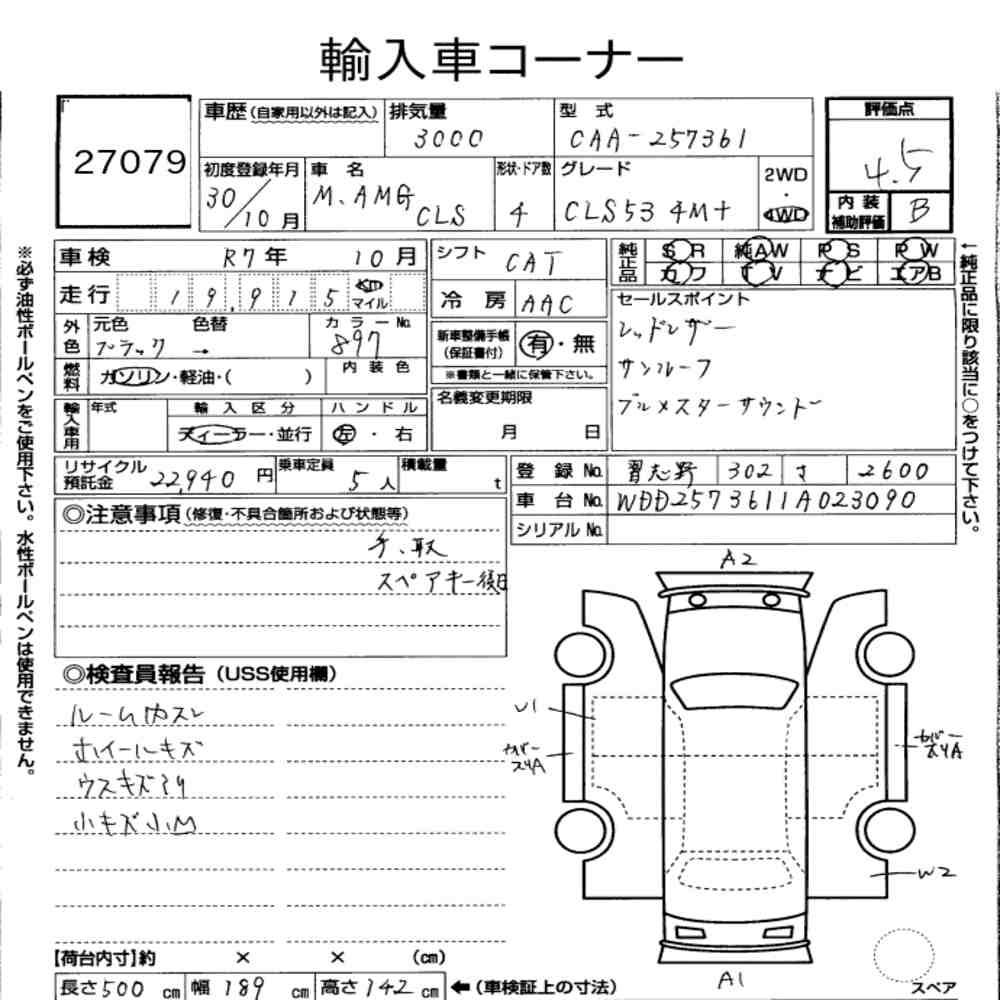 輸入車コーナー
27079
車歴 (自家用以外は記入)
排気量
3000
型式
CAA-257361
評価点
4.5
初度登録年月
30/10月
車名
M.AMG CLS
形状・ドア数
4
グレード
CLS53 4M+
2WD
・
4WD
内装
補助評価
B
車検 R7年 10月
シフト CAT
純正品
SR 純AW PS PW
カワ TV ナビ エアB
走行 19,915 km マイル
冷房 AAC
セールスポイント
レッドレザー
サンルーフ
ブルメスターサウンド
外色
元色 色替
ブラック →
カラーNo.
897
新車整備手帳
(保証書付)
有・無
※書類と一緒に保管下さい。
燃料
ガソリン・軽油・( )
内装色
名義変更期限
月 日
輸入車用
年式
輸入区分
ディーラー・並行
ハンドル
左・右
リサイクル
預託金
22,940円
乗車定員
5人
積載量
t
登録No. 習志野 302 さ 2600
車台No. WDD2573611A023090
シリアルNo.
◎注意事項(修復・不具合箇所および状態等)
手、取
スペアキー後日
◎検査員報告(USS使用欄)
ルーム内スレ
ホイールキズ
ウスキズアリ
小キズ小凹
A2
U1
カバースリA
カバースリA
W2
A1
スペア
【荷台内寸】約 × × (cm)
長さ500cm 幅189cm 高さ142cm ←(車検証上の寸法)
※必ず油性ボールペンをご使用下さい。水性ボールペンは使用できません。
←純正品に限り該当に○をつけて下さい。